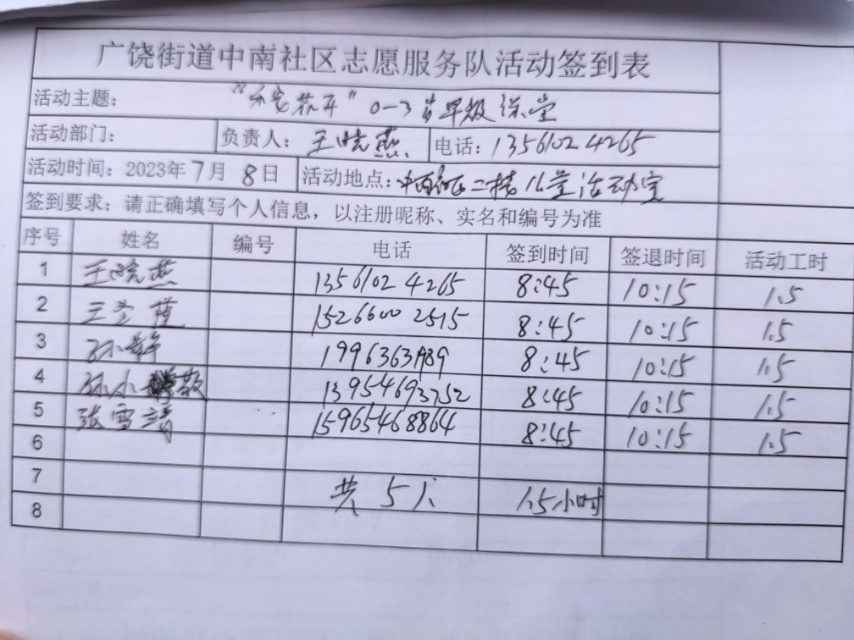 广饶街道中南社区志愿服务队活动签到表
活动主题： 花开" 0-3岁早级课堂
活动部门： 负责人：王晓燕 电话：13561024265
活动时间：2023年7月8日 活动地点： 二楼儿童活动室
签到要求：请正确填写个人信息，以注册昵称、实名和编号为准
序号 姓名 编号 电话 签到时间 签退时间 活动工时
1 王晓燕 13561024265 8:45 10:15 1.5
2 王 15266002515 8:45 10:15 1.5
3 孙 8:45 10:15 1.5
4 孙小 8:45 10:15 1.5
5 张雪 15965468864 8:45 10:15 1.5
6
7 共5人 1.5小时
8